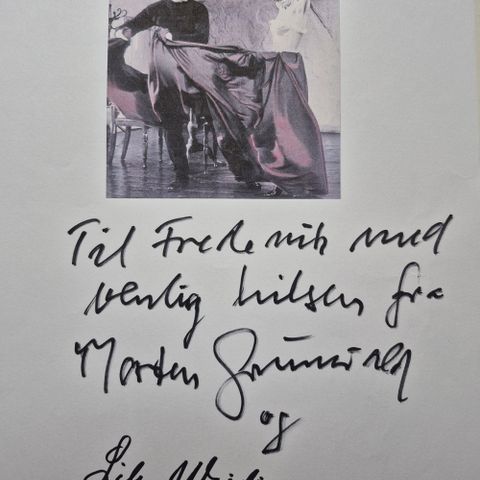 Til Frederik med
venlig hilsen fra
Morten Grunwald
og